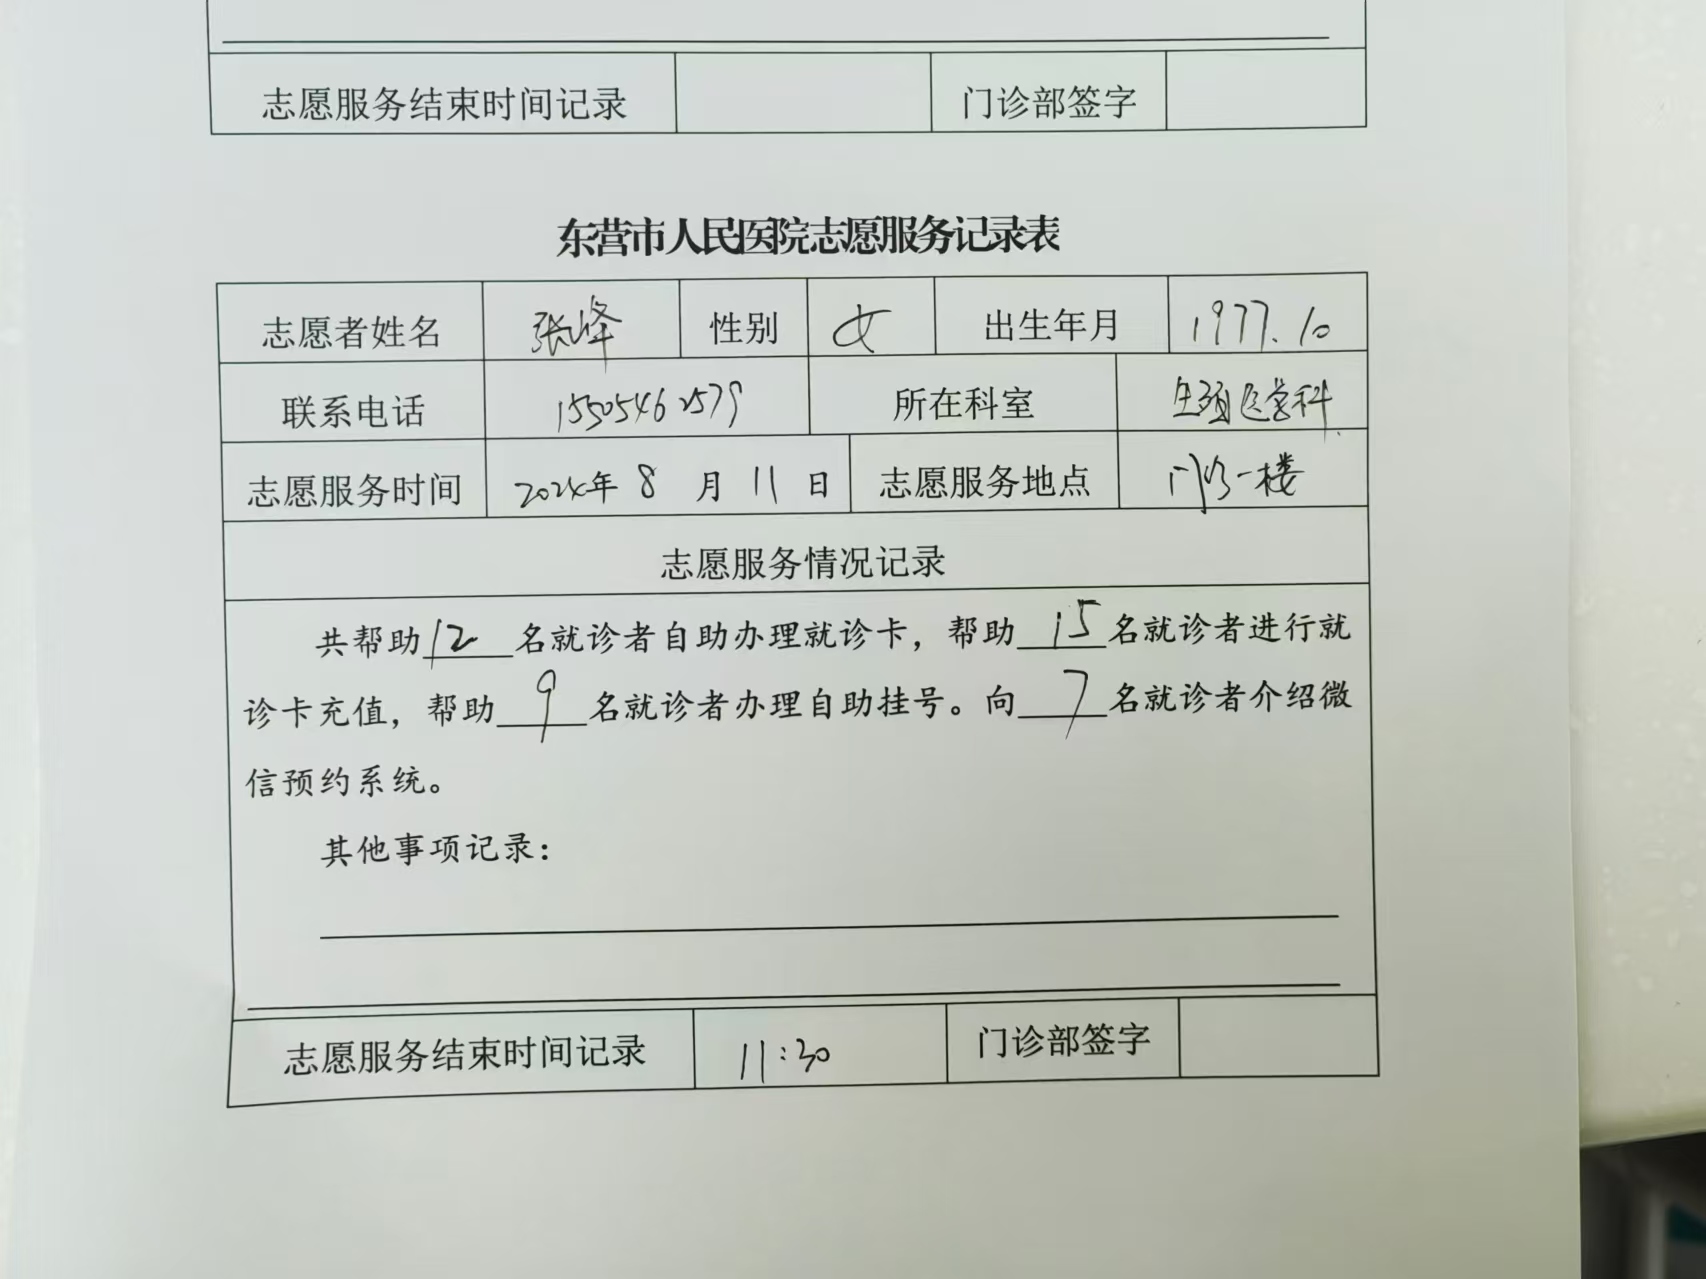 志愿服务结束时间记录 门诊部签字
东营市人民医院志愿服务记录表
志愿者姓名 张峰 性别 女 出生年月 1977.10
联系电话 15505462579 所在科室 医学科
志愿服务时间 2024年 8 月 11 日 志愿服务地点 门诊一楼
志愿服务情况记录
共帮助12名就诊者自助办理就诊卡，帮助15名就诊者进行就
诊卡充值，帮助9名就诊者办理自助挂号。向7名就诊者介绍微
信预约系统。
其他事项记录：
志愿服务结束时间记录 11:30 门诊部签字